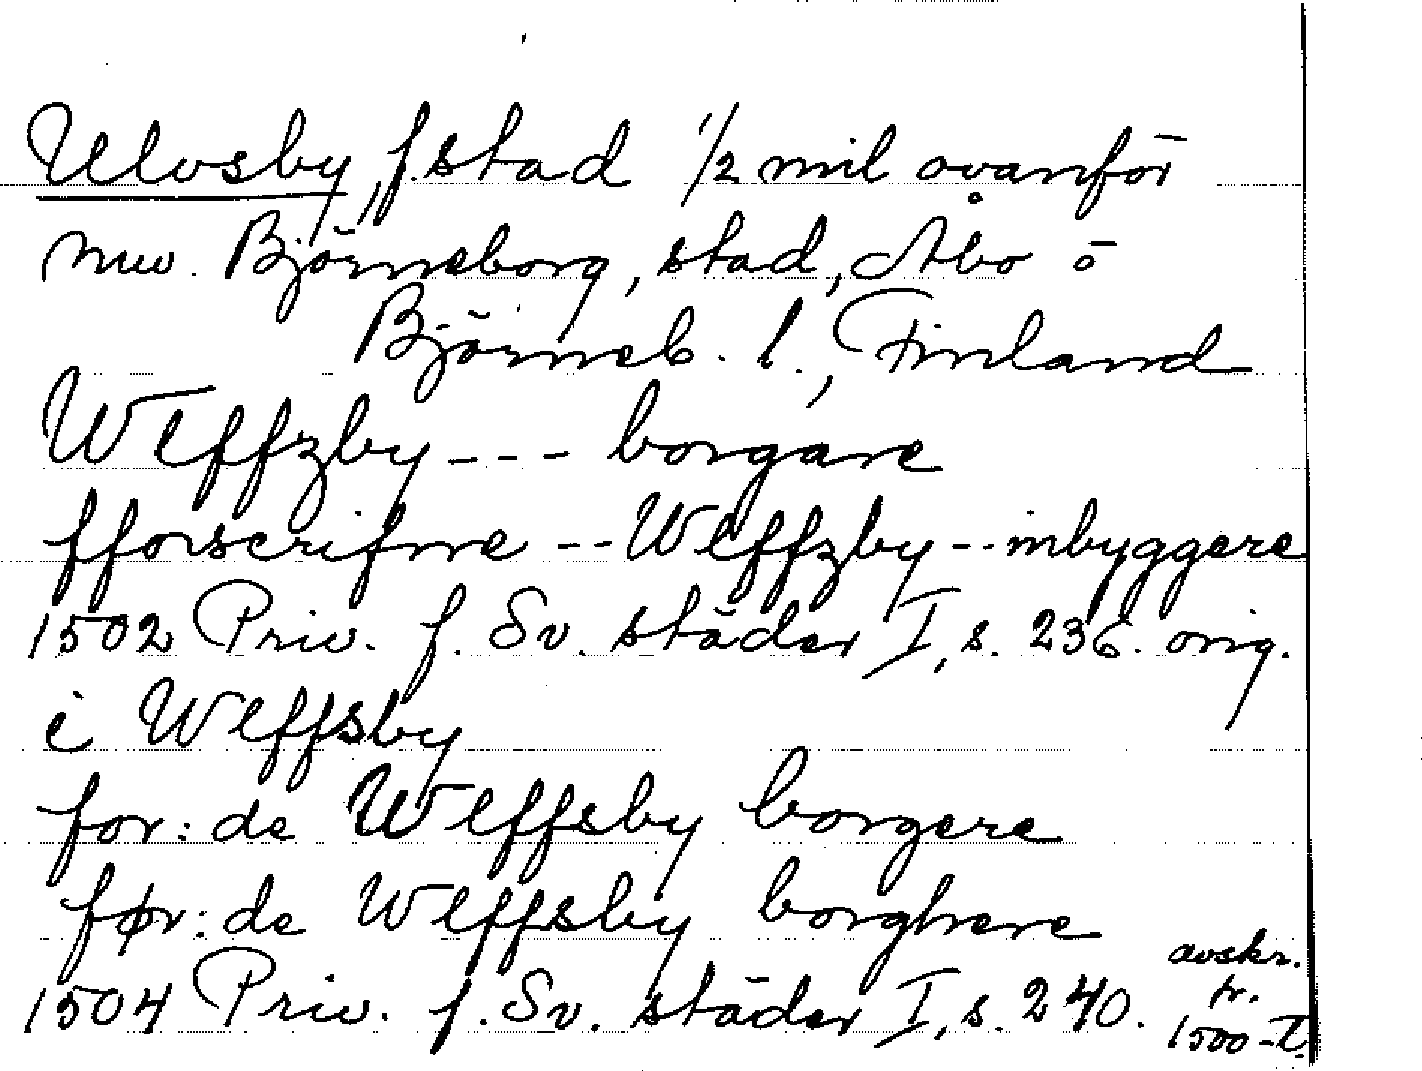 Ulvsby, f. stad 1/2 mil ovanför
nuv. Björneborg, stad, Åbo o
Björneb. l., Finland
Wlffzby --- borgare
fforscrifne -- Wlffzby -- inbyggere
1502 Priv. f. Sv. städer I, s. 236. orig.
i Wlffsby
for:de Wlffsby borgere
før:de Wlffsby borghere
1504 Priv. f. Sv. städer I, s. 240. avskr.
fr.
1500-t.